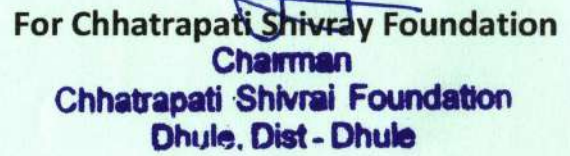 For Chhatrapati Shivray Foundation
Chairman
Chhatrapati Shivrai Foundation
Dhule, Dist - Dhule